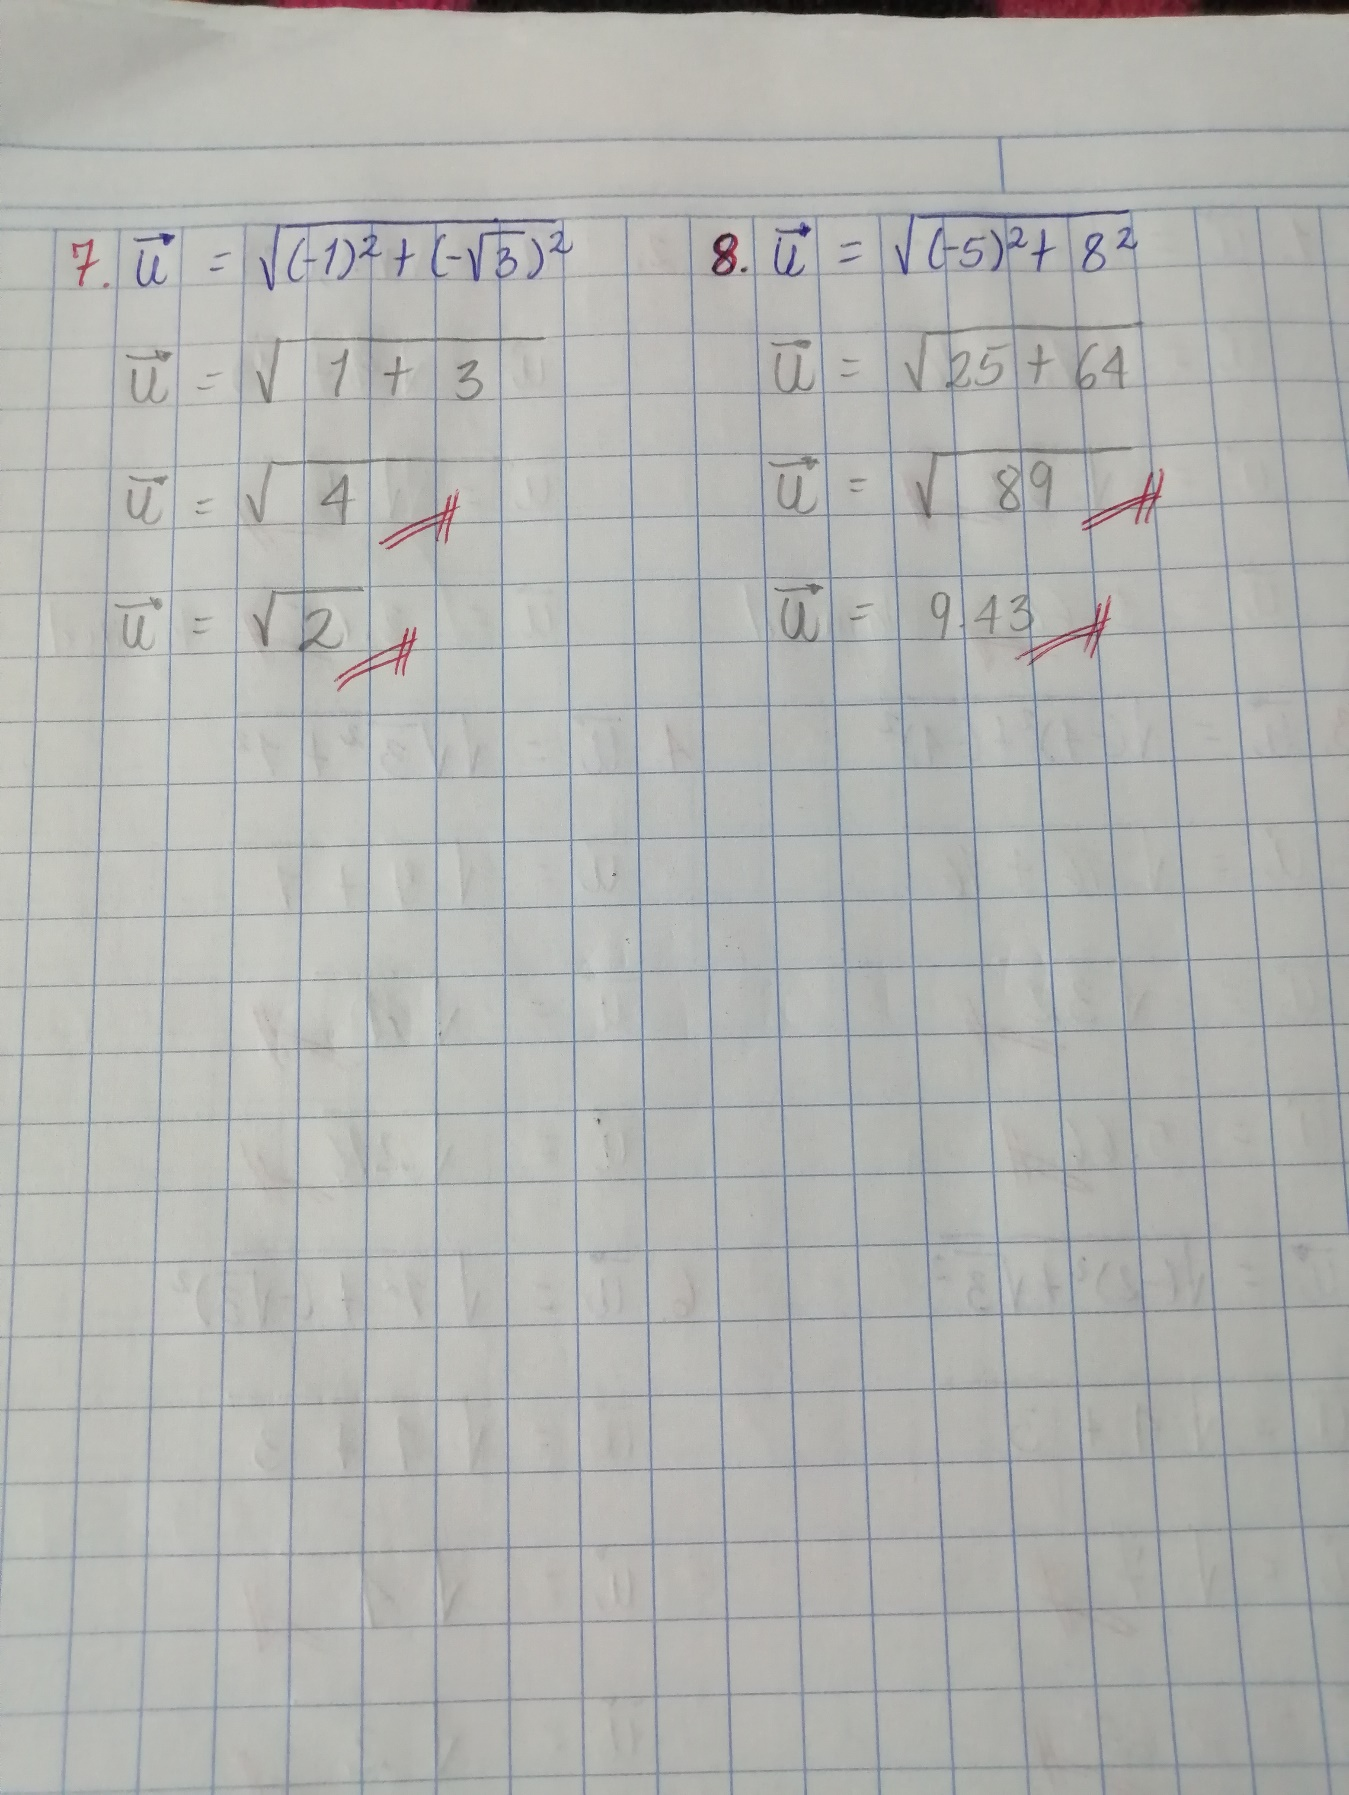 7. u⃗ = √((-1)² + (-√3)²)
u⃗ = √(1 + 3)
u⃗ = √4
u⃗ = √2
8. u⃗ = √((-5)² + 8²)
u⃗ = √(25 + 64)
u⃗ = √89
u⃗ = 9.43